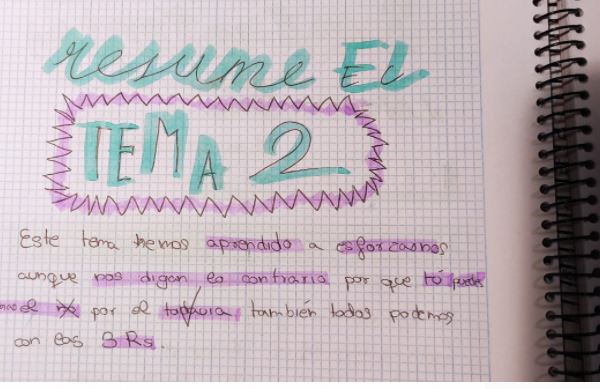 resume EL
TEMA 2
Este tema hemos aprendido a esforzarnos
aunque nos digan lo contrario por que tú puedes
el no por el todavia también todos podemos
con las 3Rs.